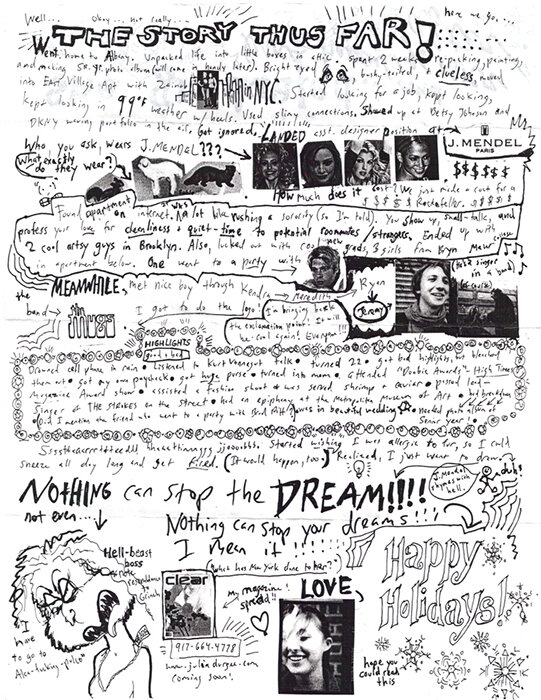 Well... Okay... not really...
here we go...
THE STORY THUS FAR!
Went home to Albany. Unpacked life into little boxes in attic. Spent 2 weeks re-packing, painting,
and making Sr. yr. photo album (will come in handy later). Bright eyed, bushy-tailed, + clueless, moved
into East Village Apt with in NYC. Started looking for a job, kept looking,
kept looking in 99°F weather w/ heels. Used slimy connections. Showed up at Betsy Johnson and
DKNY waving portfolio in the air. Got ignored. LANDED asst. designer position at
J. MENDEL
PARIS
Who you ask, wears J. MENDEL???
What exactly do they wear?
$$$$$$
How much does it cost? We just made a coat for a
$$$$ Rockefeller. $$$$$$
Found apartment on internet. Was a lot like rushing a sorority (so I'm told). You show up, small-talk, and
profess your love for cleanliness + quiet-time to potential roommates / strangers. Ended up with
2 cool artsy guys in Brooklyn. Also, lucked out with grads, 3 girls from Bryn Mawr
in apartment below. One went to a party with
MEANWHILE, met nice boy through Kendra
Meredith
Ryan
singer
in a band
of course
the
band
I got to do the logo.
I'm bringing back
the exclamation point! It will
be cool again! Everyone!!!
HIGHLIGHTS
good + bad
Drowned cell phone in rain. Listened to Kurt Vonnegut talk. turned 22. got bad highlights, but bleached
them out. got my own paycheck. got huge purse. turned into mom. attended "Doobie Awards" High Times
Magazine Award show. assisted a fashion shoot + was served shrimp + caviar. passed lead
singer of THE STROKES on the street. had an epiphany at the Metropolitan Museum of Art. had breakdown
did I mention the friend who went to a party with Brad Pitt? was in beautiful wedding. needed photo album of
Senior year
Started wishing I was allergic to fur, so I could
sneeze all day long and get fired. (It would happen, too.) Realized, I just want to draw
duh!
J. Mendel
rhymes with
hell.
NOTHING can stop the DREAM!!!!
not even...
Nothing can stop your dreams!!!
I Mean it!!!!!!
Hell-beast
boss
note
resemblance
to
Grinch
I
have
to go to
(What has New York done to her??)
clear
my magazine
spread!!
917-664-4778
www.julia durgee.com
coming soon!
LOVE,
Happy
Holidays!
hope you
could read
this